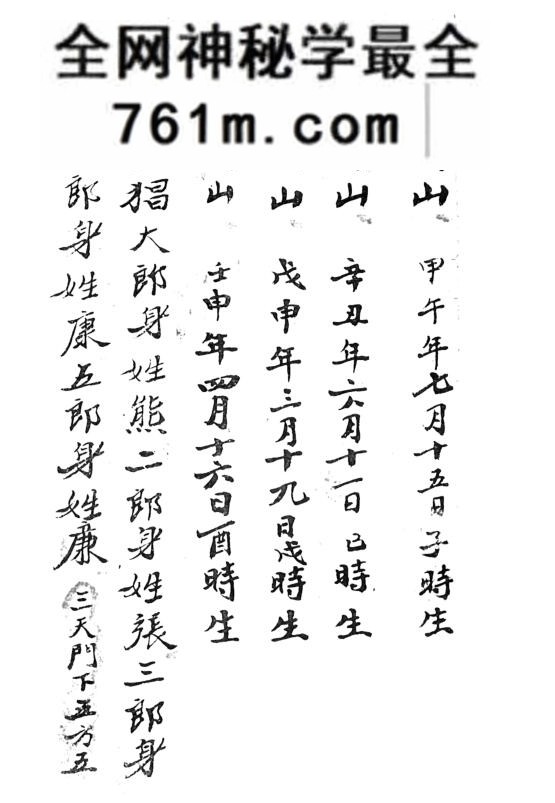 全网神秘学最全
761m.com
山 甲午年七月十五日子時生
山 辛丑年六月十一日巳時生
山 戊申年三月十九日戌時生
山 壬申年四月十六日酉時生
猖大郎身姓熊二郎身姓張三郎身
郎身姓康五郎身姓廉 三天門下五方五